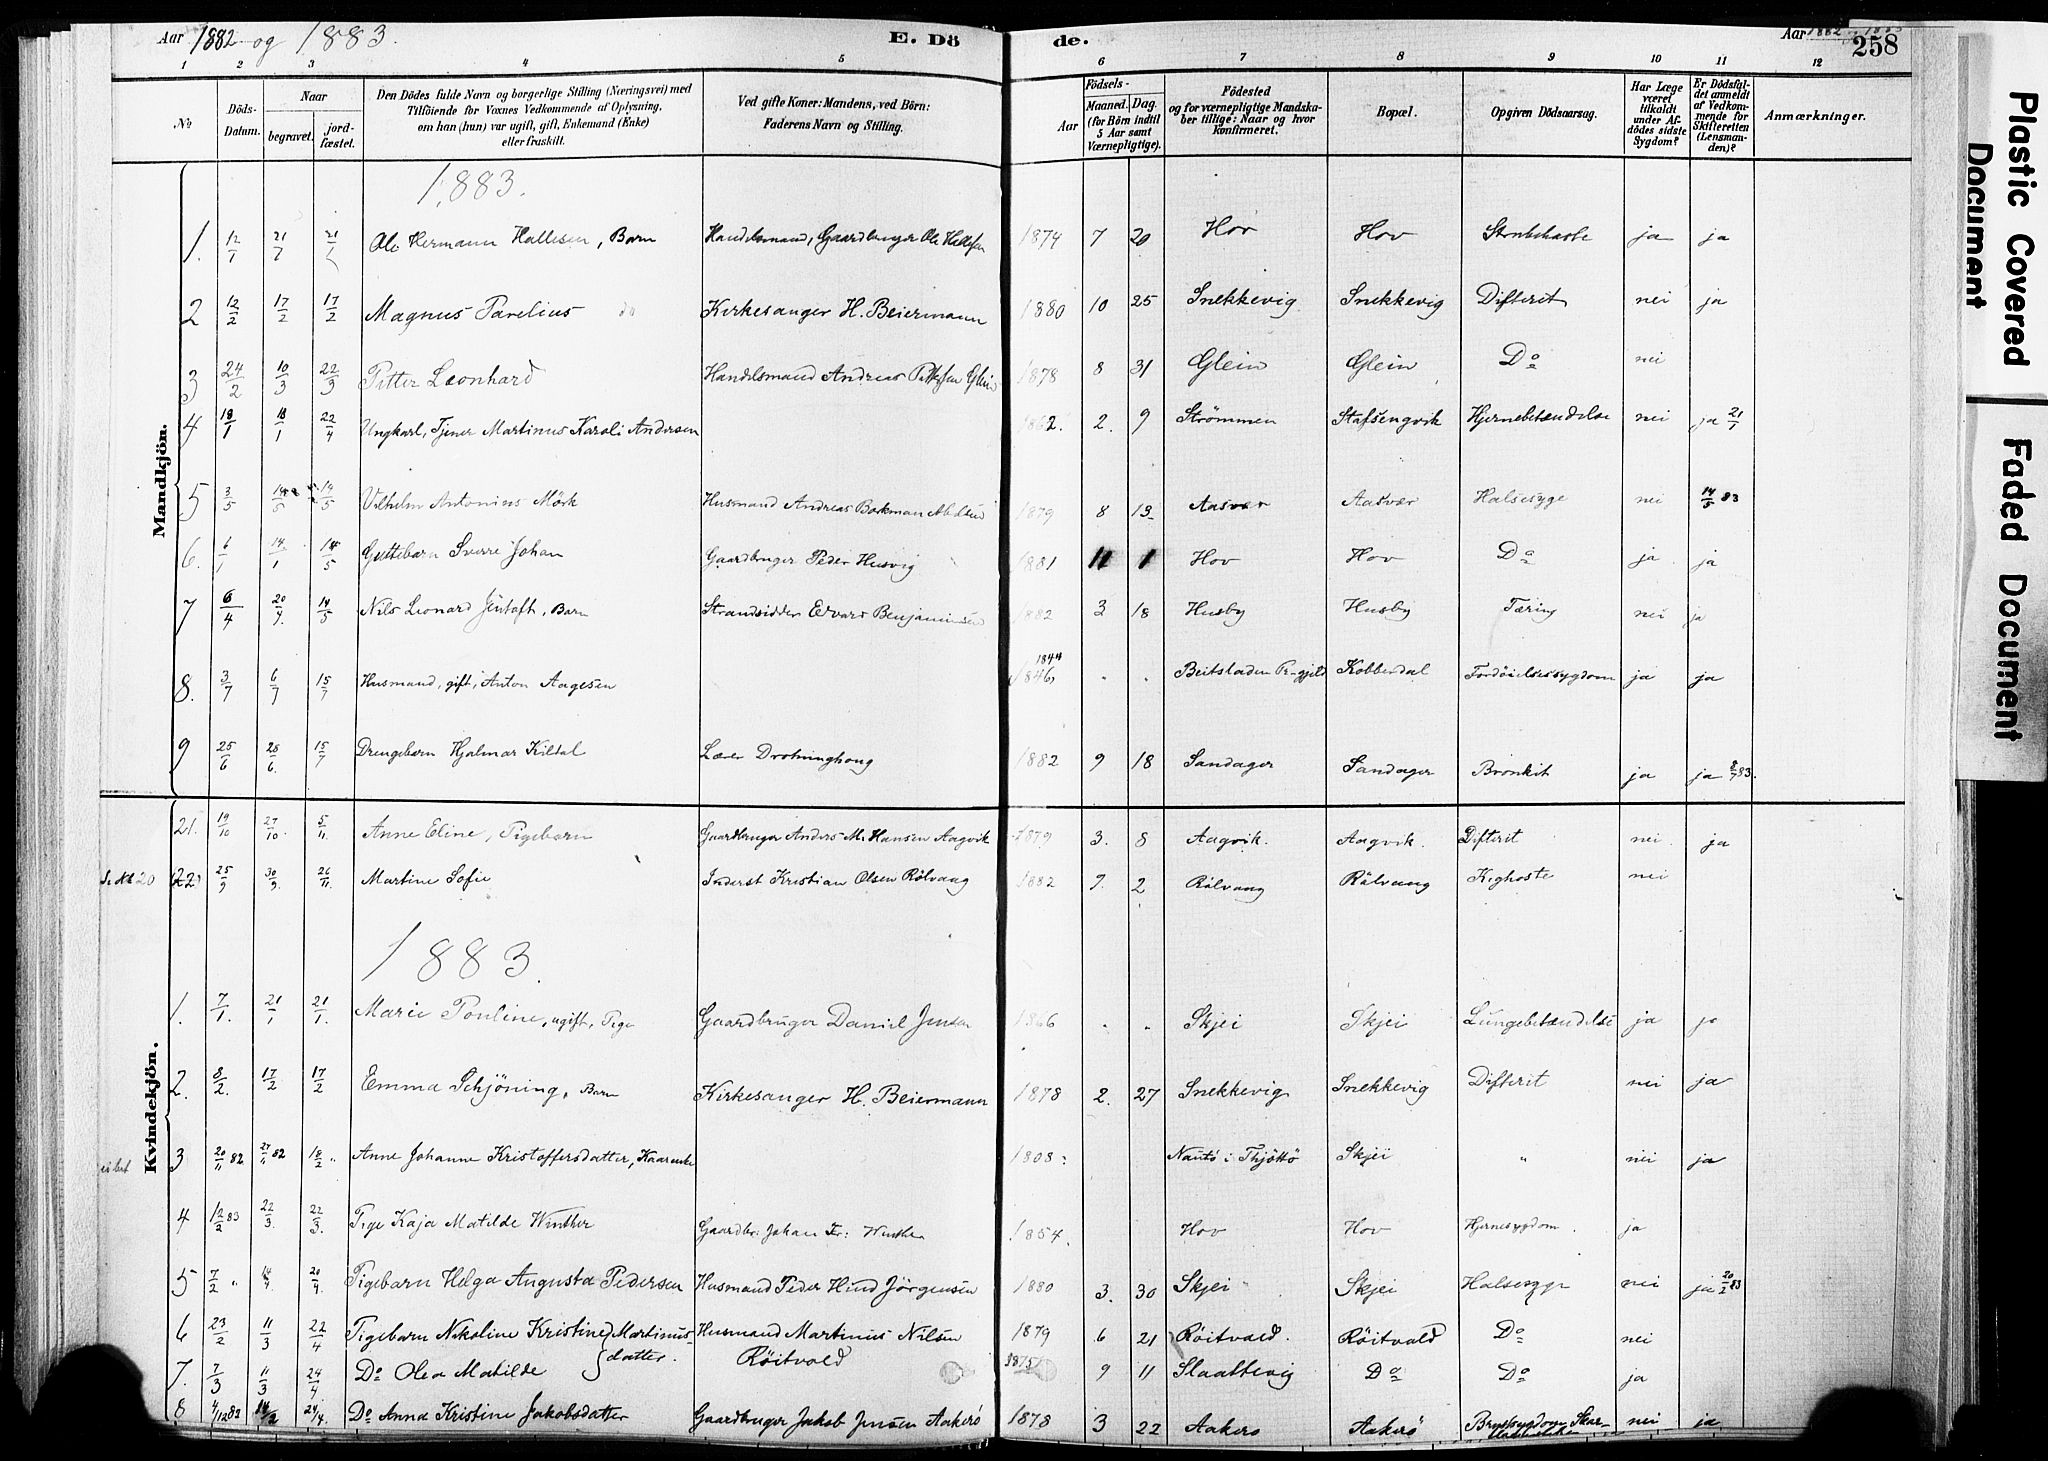 Aar 1882 og 1883.
E. Dö
de.
Aar 1882
258
1 2 3 4 5 6 7 8 9 10 11 12
№
Döds-Datum.
Naar
begravet.
jord-fæstet.
Den Dödes fulde Navn og borgerlige Stilling (Næringsvei) med
Tilföiende for Voxnes Vedkommende af Oplysning,
om han (hun) var ugift, gift, Enkemand (Enke)
eller fraskilt.
Ved gifte Koner: Mandens, ved Börn:
Faderens Navn og Stilling.
Födsels-
Aar
Maaned. Dag.
(for Börn indtil
5 Aar samt
Værnepligtige).
Födested
og for værnepligtige Mandska-
ber tillige: Naar og hvor
konfirmeret.
Bopæl.
Opgiven Dödsaarsag.
Har Læge
været
tilkaldt
under Af-
dödes sidste
Sygdom?
Er Dödsfal-
det anmeldt
af Vedkom-
mende for
Skifteretten
(Lensman-
den)?
Anmærkninger.
Mandkjön.
1883.
1. 12/1 21/1 21/1 Ole Hermann Hallesen, Barn Handelsmand, Gaardbruger Ole Hallesen 1874 7 20 Hov Hov Strubehoste ja ja
2 12/2 17/2 17/2 Magnus Parelius do Kirkesanger H. Beiermann 1880 10 25 Snekkevig Snekkevig Difterit nei ja
3 24/2 10/3 22/3 Petter Leonhard Handelsmand Andreas Pettersen Glein 1878 8 31 Glein Glein Do nei
4 18/1 18/1 22/4 Ungkarl, Tjener Martinus Karoli Andersen 1862. 2. 9 Strømmen Stafsengvik Hjernebetændelse nei ja 21/1
5 3/5 14/5 14/5 Vilhelm Antonius Mörk Husmand Andreas Bækman 1879 8 13 Aasvær Aasvær Halsesyge nei 14/5 83
6. 6/1 14/1 14/5 Guttebarn Sverre Johan Gaardbruger Peder Husvig 1881 11 1 Hov Hov Do ja ja
7 6/4 20/4. 14/5 Nils Leonard Jentoft, Barn Strandsidder Edvard Benjaminsen 1882 3 18 Husby Husby Tæring nei ja
8. 3/7 6/7 15/7 Husmand, gift, Anton Aagesen 1844 1846 Beitstaden Pr-gjeld Kobberdal Fordöielsessygdom ja ja
9 25/6 28/6. 15/7 Drengebarn Hjalmar Kiltal Lærer Dronninghoug 1882 9 18 Sandager Sandager Bronkit ja ja 8/7 83.
21. 19/10 27/10. 5/11. Anne Eline, Pigebarn Gaardbruger Anders M. Hansen Aagvik 1879 3. 8 Aagvik. Aagvik. Difterit nei. ja
22 25/9 30/9. 26/11. Martine Sofie Inderst Kristian Olsen Rölvaag 1882 9. 2 Rölvaag Rölvaag Kighoste nei
Kvindekjön.
1883.
1. 7/1. 21/1 21/1. Marie Pouline, ugift, Pige Gaardbruger Daniel Jensen 1866 Skjei Skjei Lungebetændelse ja ja
2. 8/2. 17/2 17/2 Emma Schjöning, Barn Kirkesanger H. Beiermann 1878 2. 27 Snekkevig Snekkevig Difterit nei ja
3 20/11 82 27/11 82 18/2 Anne Johanne Kristoffersdatter, Kaarenke 1808 Nautö i Thjöttö Skjei " nei ja
4 12/2 83 22/3. 22/3. Pige Kaja Matilde Winther Gaardbr: Johan Fr: Winther 1854. Hov Hov Hjernesygdom. ja
5 7/2 " 14/4. 20/4. Pigebarn Helga Augusta Pedersen Husmand Peder Hind Jörgensen 1880 3. 30 Skjei Skjei Halsesyge nei ja 20/2 83
6 23/2 11/3 22/4 Pigebarn Nikoline Kristine Martinus- Husmand Martinus Nilsen 1879 6 21 Röitvald. Röitvald Do nei
7. 7/3 11/3 24/4 Do Olea Matilde datter. Röitvold 1875 9 11 Slaattevig Do Do ja
8 4/12 82 14/2 24/4. Do Anna Kristine Jakobsdatter Gaardbruger Jakob Jensen Aakerö 1878 3 22 Aakerö Aakerö nei ja
Plastic Covered Document
Faded Document